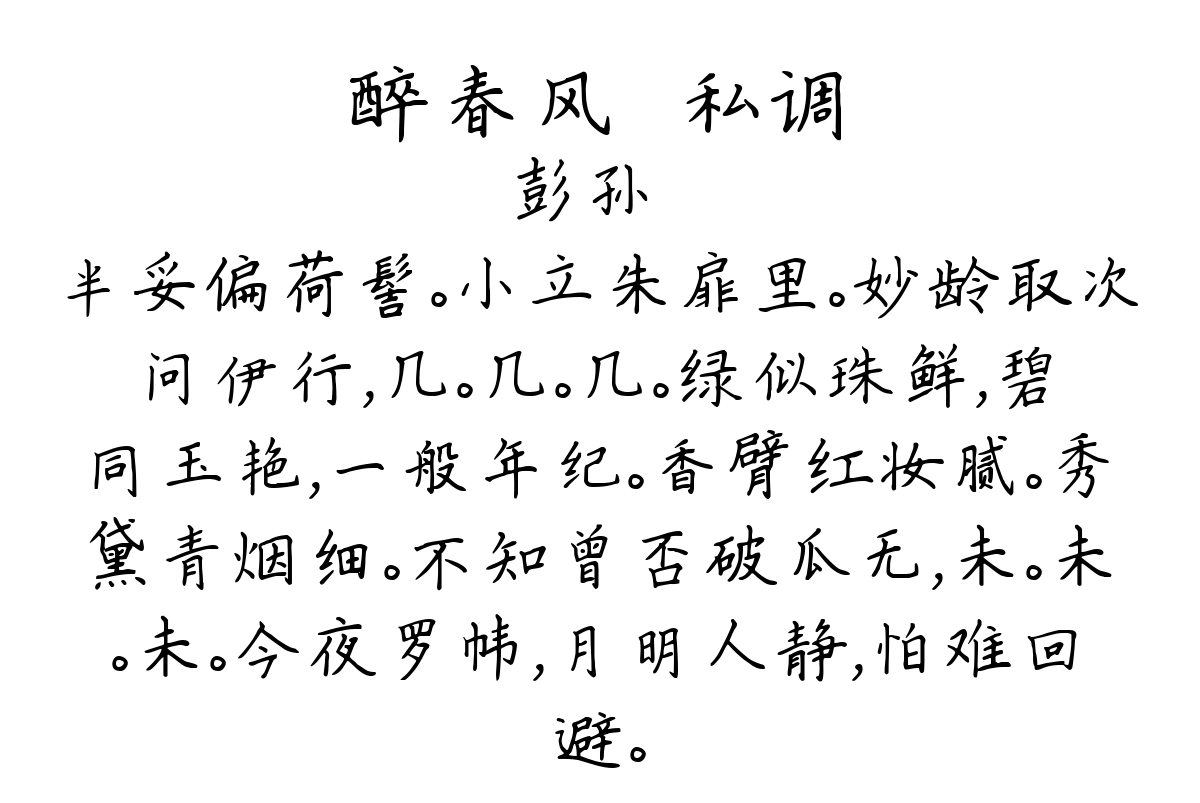 醉春风 私调
彭孙
半妥偏荷髻。小立朱扉里。妙龄取次
问伊行,几。几。几。绿似珠鲜,碧
同玉艳,一般年纪。香臂红妆腻。秀
黛青烟细。不知曾否破瓜无,未。未
。未。今夜罗帏,月明人静,怕难回
避。